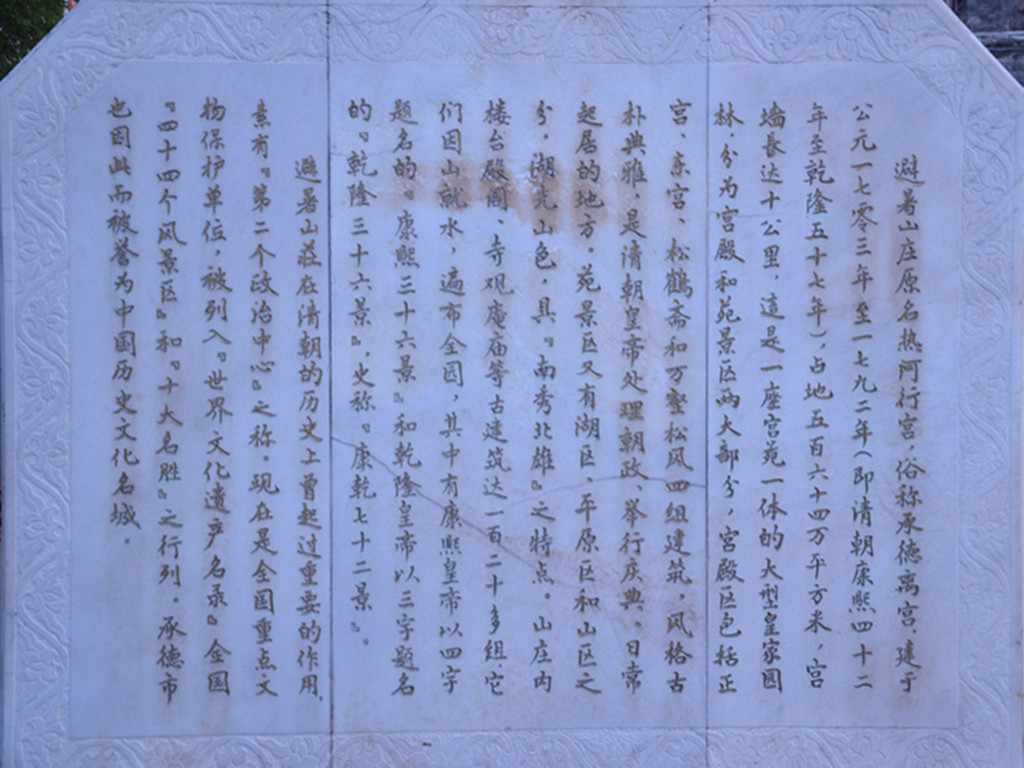 避暑山庄原名热河行宫，俗称承德离宫，建于
公元一七零三年至一七九二年（即清朝康熙四十二
年至乾隆五十七年），占地五百六十四万平方米，宫
墙长达十公里，这是一座宫苑一体的大型皇家园
林，分为宫殿和苑景区两大部分，宫殿区包括正
宫、东宫、松鹤斋和万壑松风四组建筑，风格古
朴典雅，是清朝皇帝处理朝政、举行庆典、日常
起居的地方。苑景区又有湖区、平原区和山区之
分，湖光山色，具『南秀北雄』之特点。山庄内
楼台殿阁、寺观庵庙等古建筑达一百二十多组，它
们因山就水，遍布全园，其中有康熙皇帝以四字
题名的『康熙三十六景』和乾隆皇帝以三字题名
的『乾隆三十六景』，史称『康乾七十二景』。
避暑山莊在清朝的历史上曾起过重要的作用，
素有『第二个政治中心』之称。现在是全国重点文
物保护单位，被列入『世界文化遗产名录』全国
『四十四个风景区』和『十大名胜』之行列。承德市
也因此而被誉为中国历史文化名城。